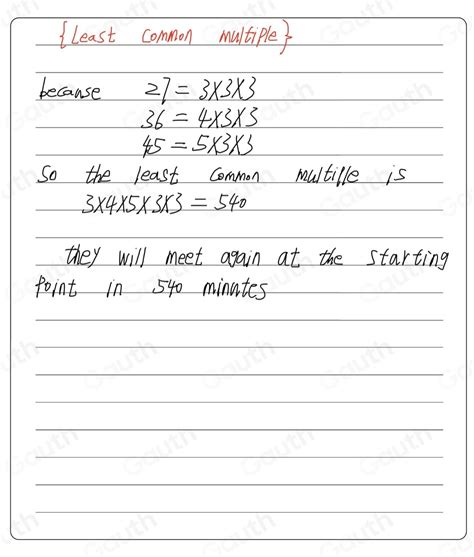 {Least common multiple}
because 27 = 3X3X3
36 = 4X3X3
45 = 5X3X3
So the least common multiple is
3X4X5X3X3 = 540
they will meet again at the starting
point in 540 minutes